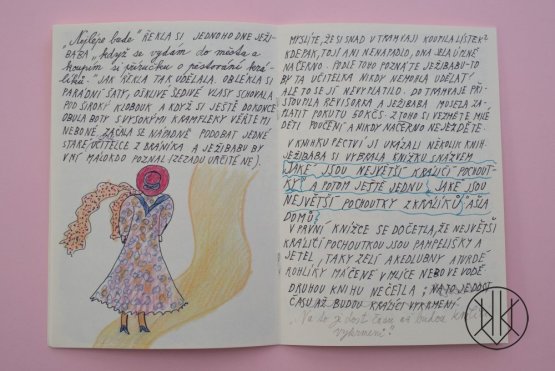 „Nejlépe bude" ŘEKLA SI JEDNOHO DNE JEŽI-
BABA „když se vydám do města a
koupím si příručku o pěstování krá-
líků." JAK ŘEKLA TAK UDĚLALA. OBLÉKLA SI
PARÁDNÍ ŠATY, OŠKLIVÉ ŠEDIVÉ VLASY SCHOVALA
POD ŠIROKÝ KLOBOUK A KDYŽ SI JEŠTĚ DOKONCE
OBULA BOTY S VYSOKÝMI KRAMFLEKY VĚŘTE MI
NEBO NE, ZAČALA SE NÁRAMNĚ PODOBAT JEDNÉ
STARÉ UČITELCE Z BRÁNÍKA A JEŽIBABU BY
V NÍ MÁLOKDO POZNAL (ZEZADU URČITĚ NE).
MYSLÍTE, ŽE SI SNAD V TRAMVAJI KOUPILA LÍSTEK?
KDEPAK, TO JI ANI NENAPADLO, ONA JELA ÚPLNĚ
NAČERNO. PODLE TOHO POZNÁTE JEŽIBABU – TO
BY TA UČITELKA NIKDY NEMOHLA UDĚLAT!
ALE TO SE JÍ NEVYPLATILO. DO TRAMVAJE PŘI-
STOUPILA REVIZORKA A JEŽIBABA MUSELA ZA-
PLATIT POKUTU 50 KČS. Z TOHO SI VEZMĚTE MILÉ
DĚTI POUČENÍ A NIKDY NAČERNO NEJEZDĚTE.
V KNIHKUPECTVÍ JÍ UKÁZALI NĚKOLIK KNIH.
JEŽIBABA SI VYBRALA KNÍŽKU S NÁZVEM
„JAKÉ JSOU NEJVĚTŠÍ KRÁLIČÍ POCHOUT-
KY" A POTOM JEŠTĚ JEDNU „JAKÉ JSOU
NEJVĚTŠÍ POCHOUTKY Z KRÁLÍKŮ" A ŠLA
DOMŮ.
V PRVNÍ KNÍŽCE SE DOČETLA, ŽE NEJVĚTŠÍ
KRÁLIČÍ POCHOUTKOU JSOU PAMPELIŠKY A
JETEL, TAKY ZELÍ A KEDLUBNY A TVRDÉ
ROHLÍKY MÁČENÉ V MLÍCE NEBO VE VODĚ.
DRUHOU KNIHU NEČETLA, NA TO JE DOST
ČASU AŽ BUDOU KRÁLÍCI VYKRMENÍ.
„Na to je dost času až budou králíci
vykrmení"